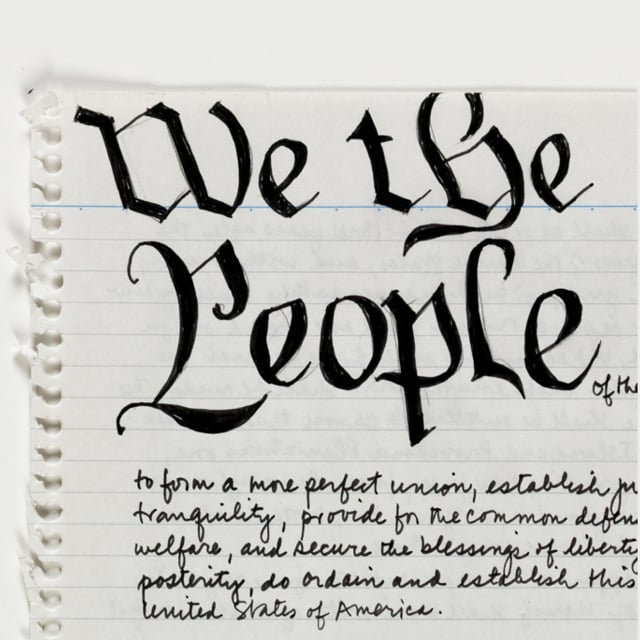 We the
People
of the
to form a more perfect union, establish
tranquility, provide for the common defen
welfare, and secure the blessings of liberty
posterity, do ordain and establish this
united States of America.